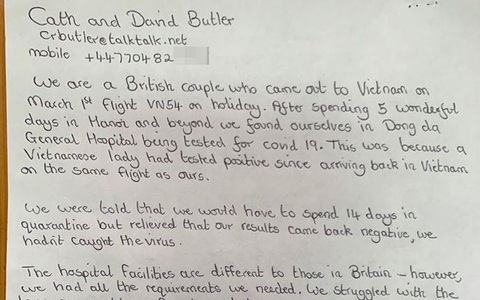 Cath and David Butler
crbutler@talktalk.net
mobile +44770482
We are a British couple who came out to Vietnam on
March 1st flight VN54 on holiday. After spending 5 wonderful
days in Hanoi and beyond we found ourselves in Dong da
General Hospital being tested for covid 19. This was because a
Vietnamese lady had tested positive since arriving back in Vietnam
on the same flight as ours.
We were told that we would have to spend 14 days in
quarantine but relieved that our results came back negative, we
hadn't caught the virus.
The hospital facilities are different to those in Britain – however,
we had all the requirements we needed. We struggled with the